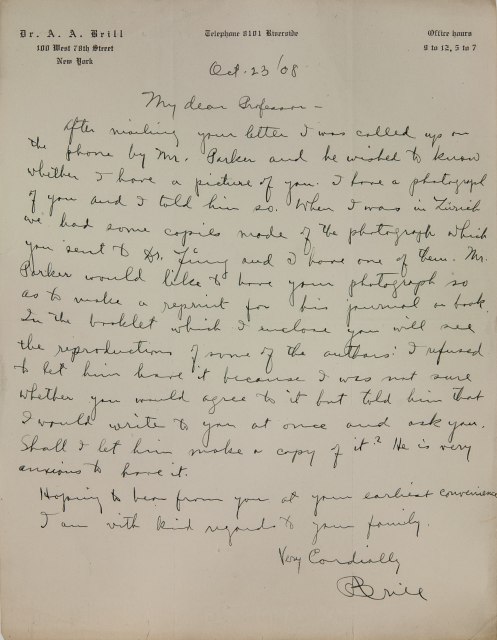 Dr. A. A. Brill
100 West 78th Street
New York
Telephone 8101 Riverside
Office hours
9 to 12, 5 to 7
Oct. 23 '08
My dear Professor –
After mailing your letter I was called up on
the phone by Mr. Parker and he wished to know
whether I have a picture of you. I have a photograph
of you and I told him so. When I was in Zürich
we had some copies made of the photograph which
you sent to Dr. Jung and I have one of them. Mr.
Parker would like to have your photograph so
as to make a reprint for his journal or book.
In the booklet which I enclose you will see
the reproductions of some of the authors. I refused
to let him have it because I was not sure
whether you would agree to it but told him that
I would write to you at once and ask you.
Shall I let him make a copy of it? He is very
anxious to have it.
Hoping to hear from you at your earliest convenience
I am with kind regards to your family.
Very Cordially
ABrill